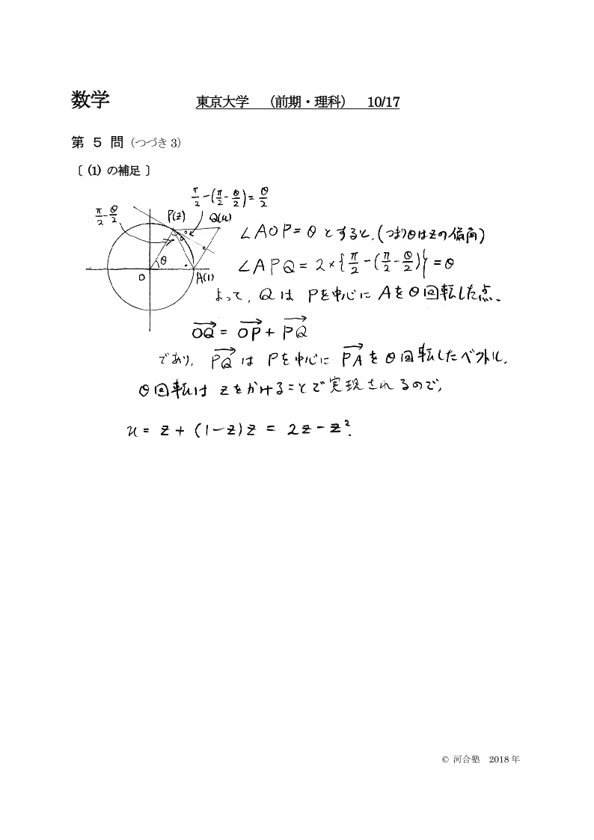 数学 東京大学 (前期・理科) 10/17
第 5 問 (つづき3)
〔 (1) の補足 〕
π/2-(π/2-θ/2)=θ/2
π/2-θ/2
P(z) Q(u)
θ
O A(1)
∠AOP=θ とすると、(つまりθはzの偏角)
∠APQ=2×{π/2-(π/2-θ/2)}=θ
よって, Qは Pを中心に Aをθ回転した点.
OQ→ = OP→ + PQ→
であり, PQ→ は Pを中心に PA→ をθ回転したベクトル.
θ回転は zをかけることで実現されるので,
u = z + (1-z)z = 2z-z².
© 河合塾 2018 年